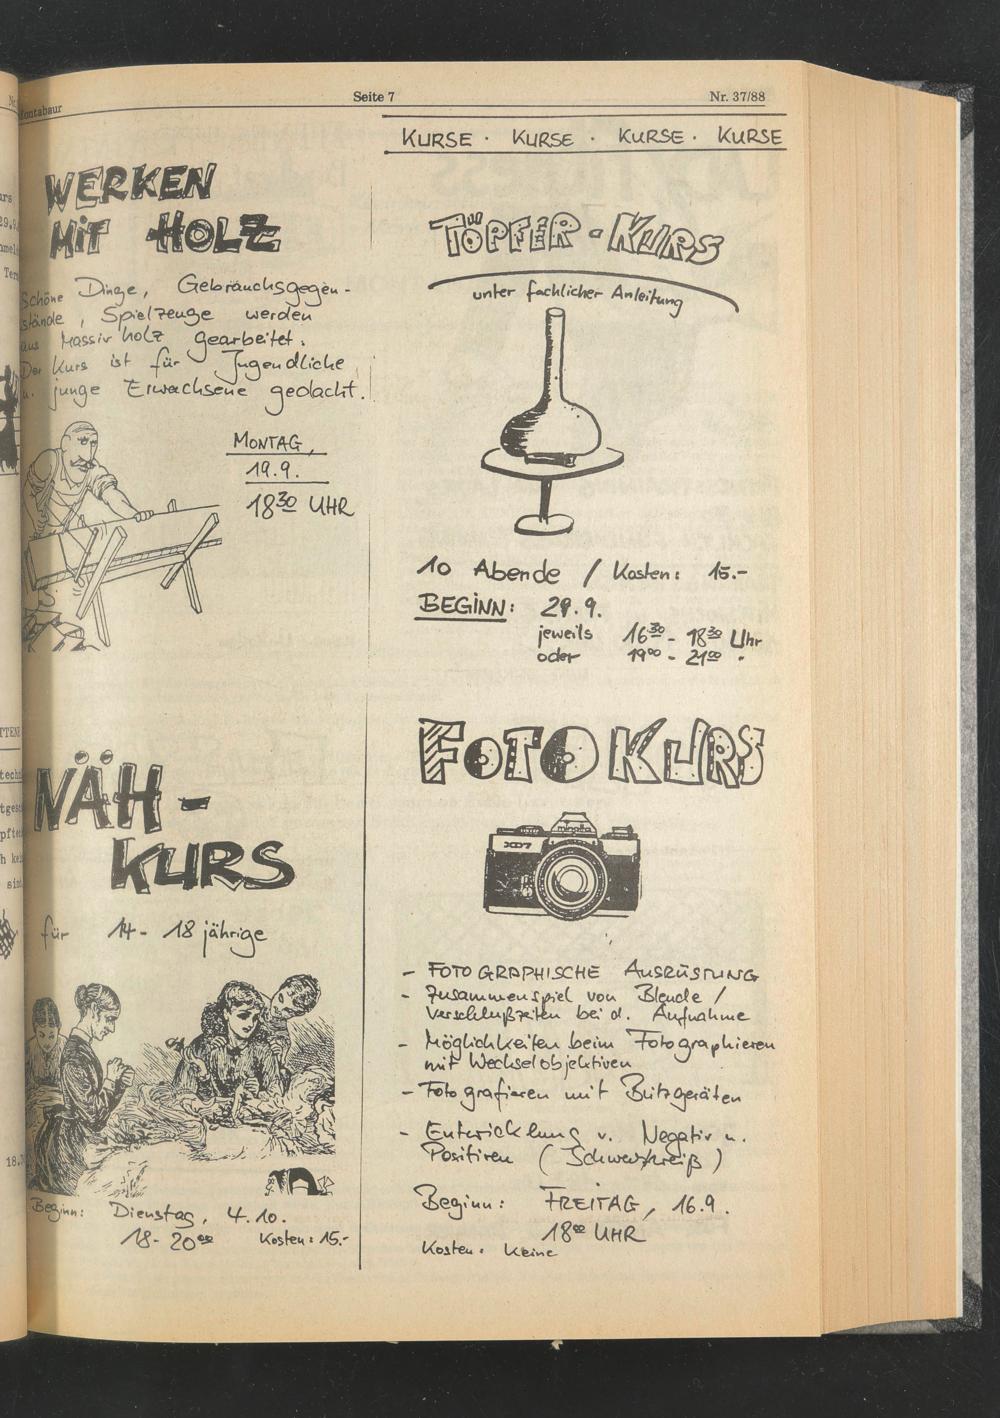 Montabaur
Seite 7
Nr. 37/88
KURSE · KURSE · KURSE · KURSE
WERKEN
MIT HOLZ
Schöne Dinge, Gebrauchsgegen-
stände, Spielzeuge werden
aus Massivholz gearbeitet.
Der Kurs ist für Jugendliche
u. junge Erwachsene gedacht.
MONTAG,
19.9.
18³⁰ UHR
TÖPFER-KURS
unter fachlicher Anleitung
10 Abende / Kosten: 15.-
BEGINN: 29.9.
jeweils 16³⁰ - 18³⁰ Uhr
oder 19⁰⁰ - 21⁰⁰ "
NÄH-
KURS
für 14- 18 jährige
Beginn: Dienstag, 4.10.
18- 20⁰⁰ Kosten: 15.-
FOTO KURS
XD7
- FOTOGRAPHISCHE AUSRÜSTUNG
- Zusammenspiel von Blende /
Verschlußzeiten bei d. Aufnahme
- Möglichkeiten beim Fotographieren
mit Wechselobjektiven
- Fotografieren mit Blitzgeräten
- Entwicklung v. Negativ u.
Positiven (Schwarzweiß)
Beginn: FREITAG, 16.9.
18⁰⁰ UHR
Kosten: keine